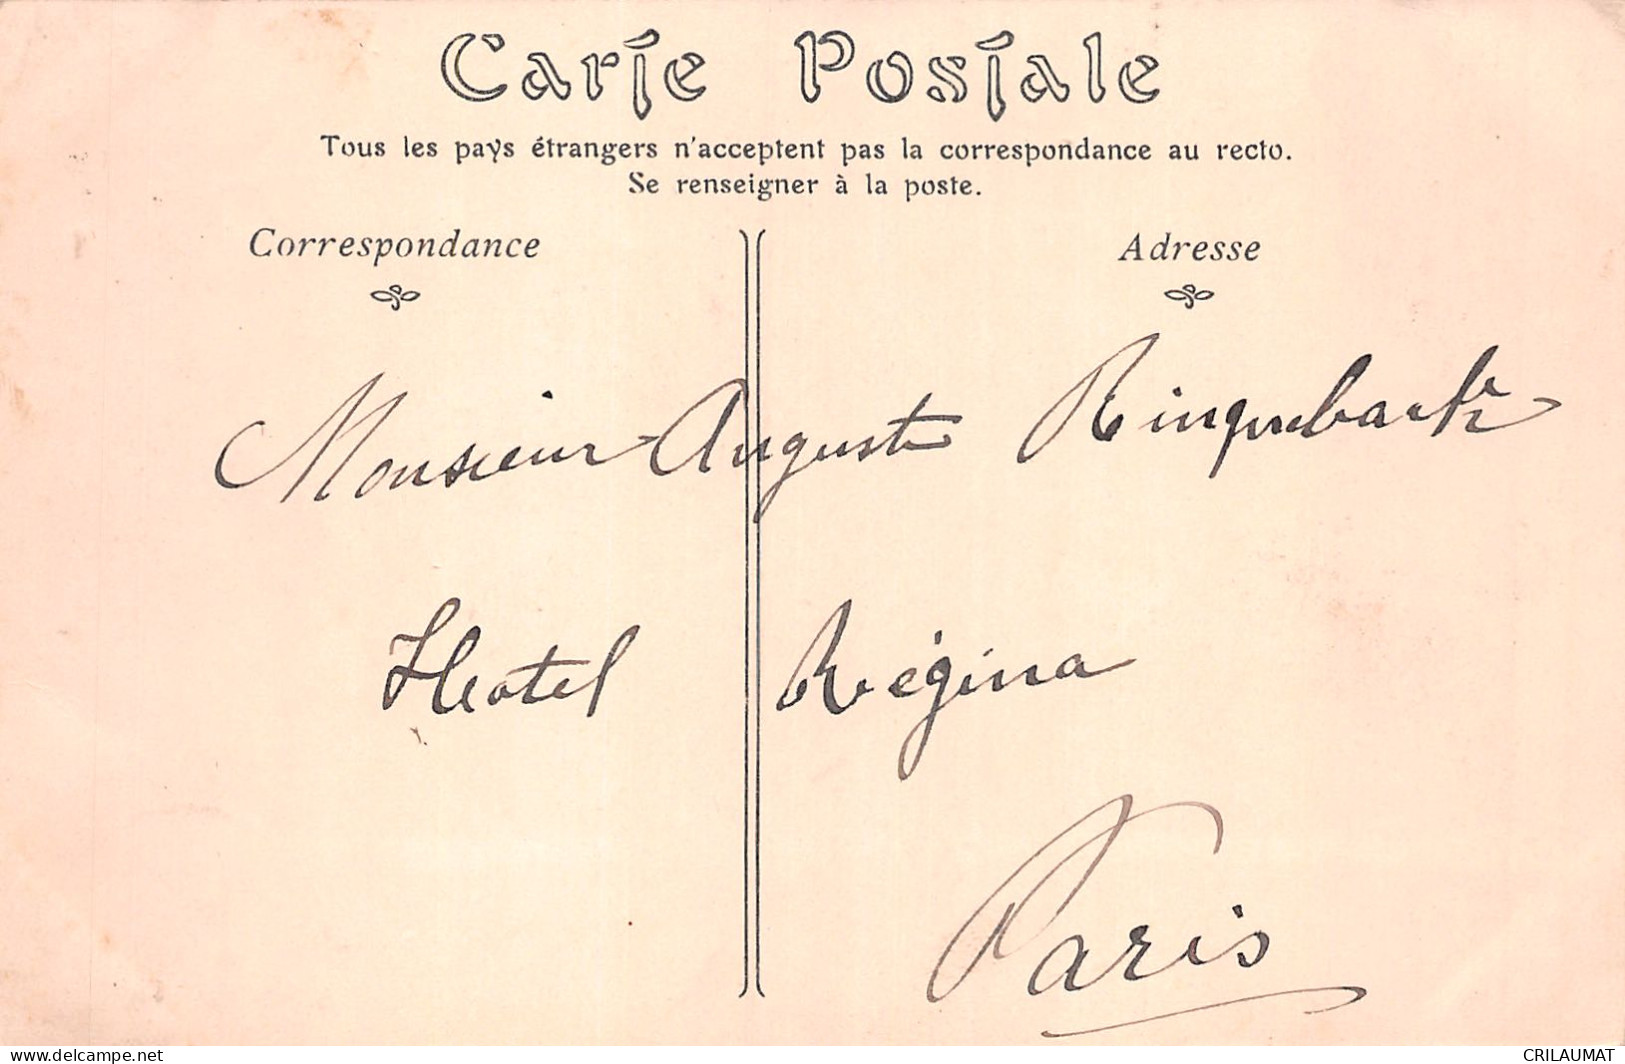 Carte Postale
Tous les pays étrangers n'acceptent pas la correspondance au recto.
Se renseigner à la poste.
Correspondance
Adresse
Monsieur Auguste
Hotel Régina
Paris
delcampe.net
CRILAUMAT